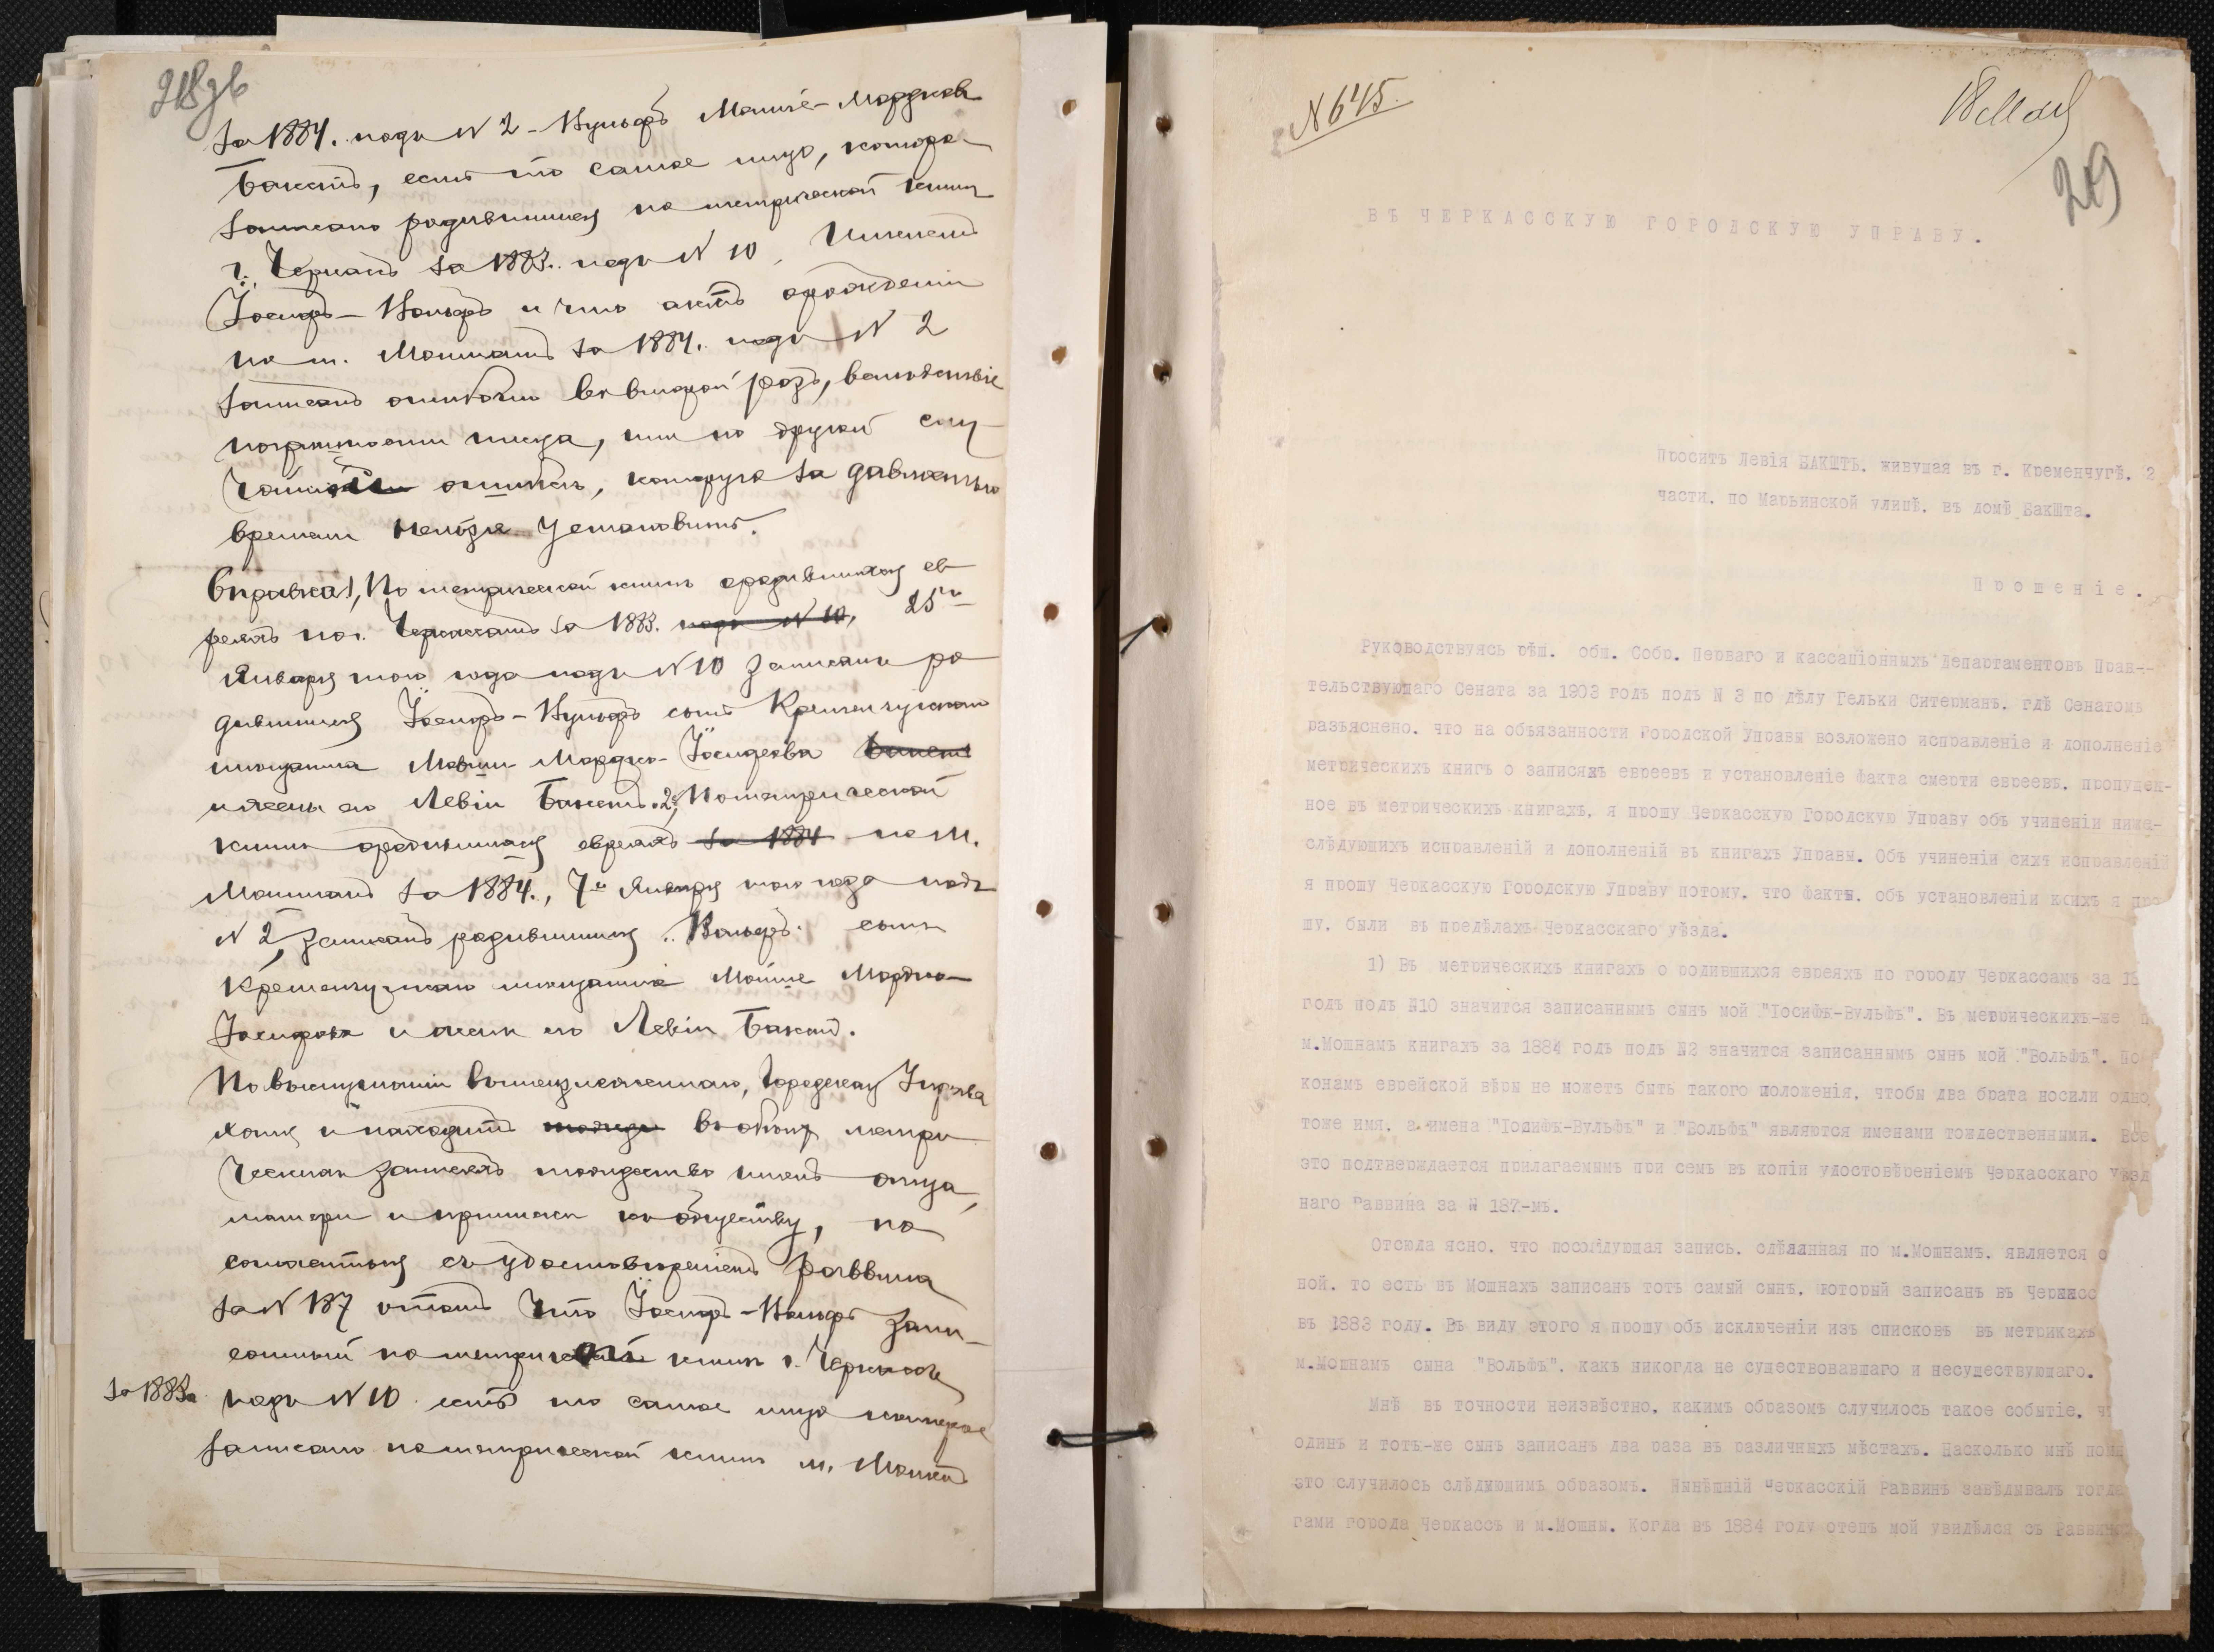 218 зв
За 1884. подъ N 2 - Вульфъ Моше-Мордков
Бакштъ, есть то самое лицо, которо-
записано родившимся по метрической книгѣ
г. Черкасъ за 1883. подъ N 10, Именемъ
Іосифъ-Вольфъ и что актъ о рожденіи
по м. Мошнамъ за 1884. подъ N 2
записанъ ошибочно во второй разъ, вслѣдствіе
писца, или по другой слу-
чайной ошибкѣ, которую за давностью
времени нельзя установить.
Справка 1, По метрической книгѣ о родившихся ев
реяхъ по г. Черкассамъ за 1883. подъ N 10, 25го
Января того года подъ N 10 записанъ ро
дившимся Іосифъ-Вульфъ сынъ Кременчугскаго
мѣщанина Мовши Мордко-Іосифова
и жены его Левіи Бакштъ. 2, По метрической
книгѣ о родившихся евреяхъ за 1884 по м.
Мошнамъ за 1884., 7го Января того года подъ
N 2, записанъ родившимся "Вольфъ" сынъ
Кременчугскаго мѣщанина Мойше Мордко-
Іосифова и жены его Левіи Бакштъ.
По выслушаніи вышеизложеннаго, Городская Управа
находитъ въ обоихъ метри
ческихъ записяхъ тождество именъ отца,
матери и приписки къ обществу, по
съ удостовѣреніемъ раввина
за N 187 о томъ что Іосифъ-Вольфъ запи-
санный по метрической книгѣ г. Черкассъ
за 1883г. подъ N 10 есть то самое лицо которое
записано по метрической книгѣ м. Мошнъ
N 645.
18 Мая
219
ВЪ ЧЕРКАССКУЮ ГОРОДСКУЮ УПРАВУ.
Проситъ Левія БАКШТЪ. живущая въ г. Кременчугѣ. 2
части. по Марьинской улицѣ. въ домѣ БакШта.
Прошеніе.
Руководствуясь рѣш. общ. Собр. Перваго и кассаціонныхъ Департаментовъ Прав--
тельствующаго Сената за 1903 годъ подъ N 3 по дѣлу Гельки Ситерманъ. гдѣ Сенатомъ
разъяснено. что на обязанности Городской Управы возложено исправленіе и дополненіе
метрическихъ книгъ о записяхъ евреевъ и установленіе факта смерти евреевъ. пропущен-
ное въ метрическихъ книгахъ, я прошу Черкасскую Городскую Управу объ учиненіи ниже-
слѣдующихъ исправленій и дополненій въ книгахъ Управы. Объ учиненіи сихъ исправленій
я прошу Черкасскую Городскую Управу потому. что факты. объ установленіи коихъ я про
шу. были въ предѣлахъ Черкасскаго уѣзда.
1) Въ метрическихъ книгахъ о родившихся евреяхъ по городу Черкассамъ за 18
годъ подъ №10 значится записаннымъ сынъ мой "Іосифъ-Вульфъ". Въ метрическихъ-же п
м.Мошнамъ книгахъ за 1884 годъ подъ №2 значится записаннымъ сынъ мой "Вольфъ". По
конамъ еврейской вѣры не можетъ быть такого положенія, чтобы два брата носили одно
тоже имя. а имена "Іосифъ-Вульфъ" и "Вольфъ" являются именами тождественными. Все
это подтверждается прилагаемымъ при семъ въ копіи удостовѣреніемъ Черкасскаго Уѣзд
наго Раввина за N 187-мъ.
Отсюда ясно. что послѣдующая запись. сдѣланная по м.Мошнамъ. является о
ной. то есть въ Мошнахъ записанъ тотъ самый сынъ. который записанъ въ Черкасс
въ 1883 году. Въ виду этого я прошу объ исключеніи изъ списковъ въ метрикахъ
м.Мошнамъ сына "Вольфъ". какъ никогда не существовавшаго и несуществующаго.
Мнѣ въ точности неизвѣстно. какимъ образомъ случилось такое событіе. чт
одинъ и тотъ-же сынъ записанъ два раза въ различныхъ мѣстахъ. Насколько мнѣ помн
это случилось слѣдующимъ образомъ. Нынѣшній Черкасскій Раввинъ завѣдывалъ тогда
гами города Черкассъ и м.Мошны. Когда въ 1884 году отецъ мой увидѣлся съ Раввино